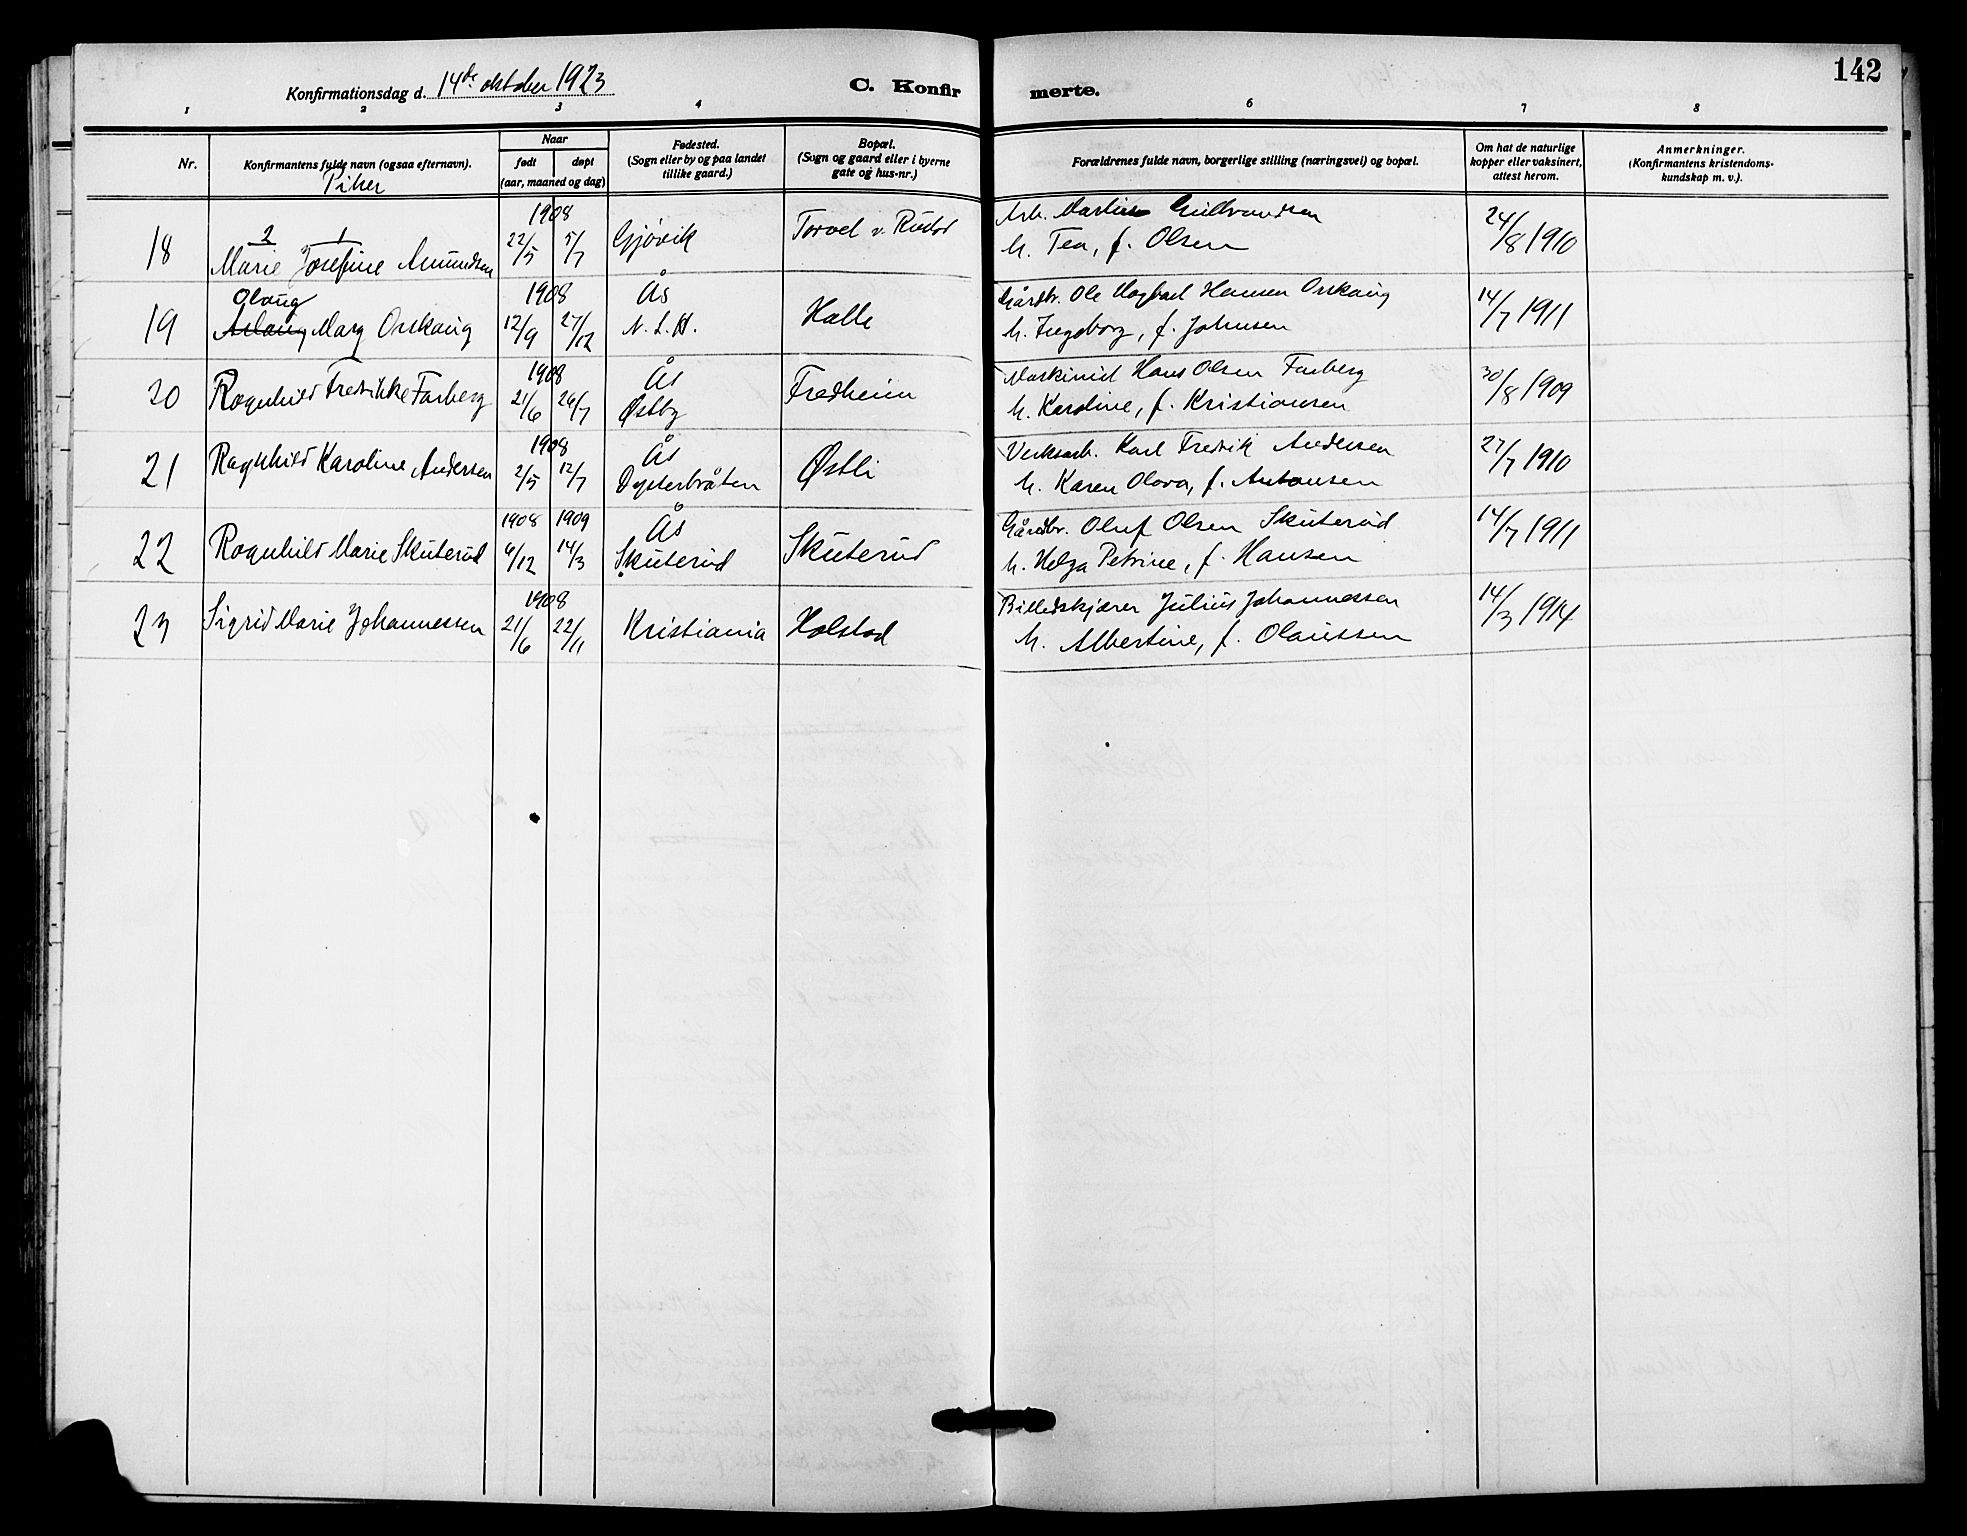 142
Konfirmationsdag d. 14de oktober 1923
C. Konfirmerte.
1 2 3 4 6 7 8
Nr.
Konfirmantens fulde navn (ogsaa efternavn).
Piker
Naar
født døpt
(aar, maaned og dag)
Fødested.
(Sogn eller by og paa landet
tillike gaard.)
Bopæl.
(Sogn og gaard eller i byerne
gate og hus-nr.)
Forældrenes fulde navn, borgerlige stilling (næringsvei) og bopæl.
Om hat de naturlige
kopper eller vaksinert,
attest herom.
Anmerkninger.
(Konfirmantens kristendoms-
kundskap m. v.).
18 2 1 Marie Josefine Amundsen 1908 22/5 5/7 Gjøvik Torvet v. Rustad Arb. Martin Gulbrandsen 24/8 1910
h. Tea, f. Olsen
19 Olaug Aslaug Marg Oskaug 1908 12/9 27/12 Ås N. L. H. Halle Gårdbr. Ole Hansen Oskaug 14/7 1911
h. Ingeborg, f. Johnsen
20 Ragnhild Fredrikke Farberg 1908 21/6 26/7 Ås Østby Fredheim Maskinist Hans Olsen Farberg 30/8 1909
h. Karoline, f. Kristiansen
21 Ragnhild Karoline Andersen 1908 2/5 12/7 Ås Dysterbråten Østli Verksarb. Karl Fredrik Andersen 27/7 1910
h. Karen Olava, f. Antonsen
22 Ragnhild Marie Skuterud 1908 6/12 1909 14/3 Ås Skuterud Skuterud Gårdbr. Oluf Olsen Skuterud 14/7 1911
h. Helga Petrine, f. Hansen
23 Sigrid Marie Johannessen 1908 21/6 22/11 Kristiania Holstad Billedskjærer Julius Johannessen 14/3 1914
h. Albertine, f. Olaussen